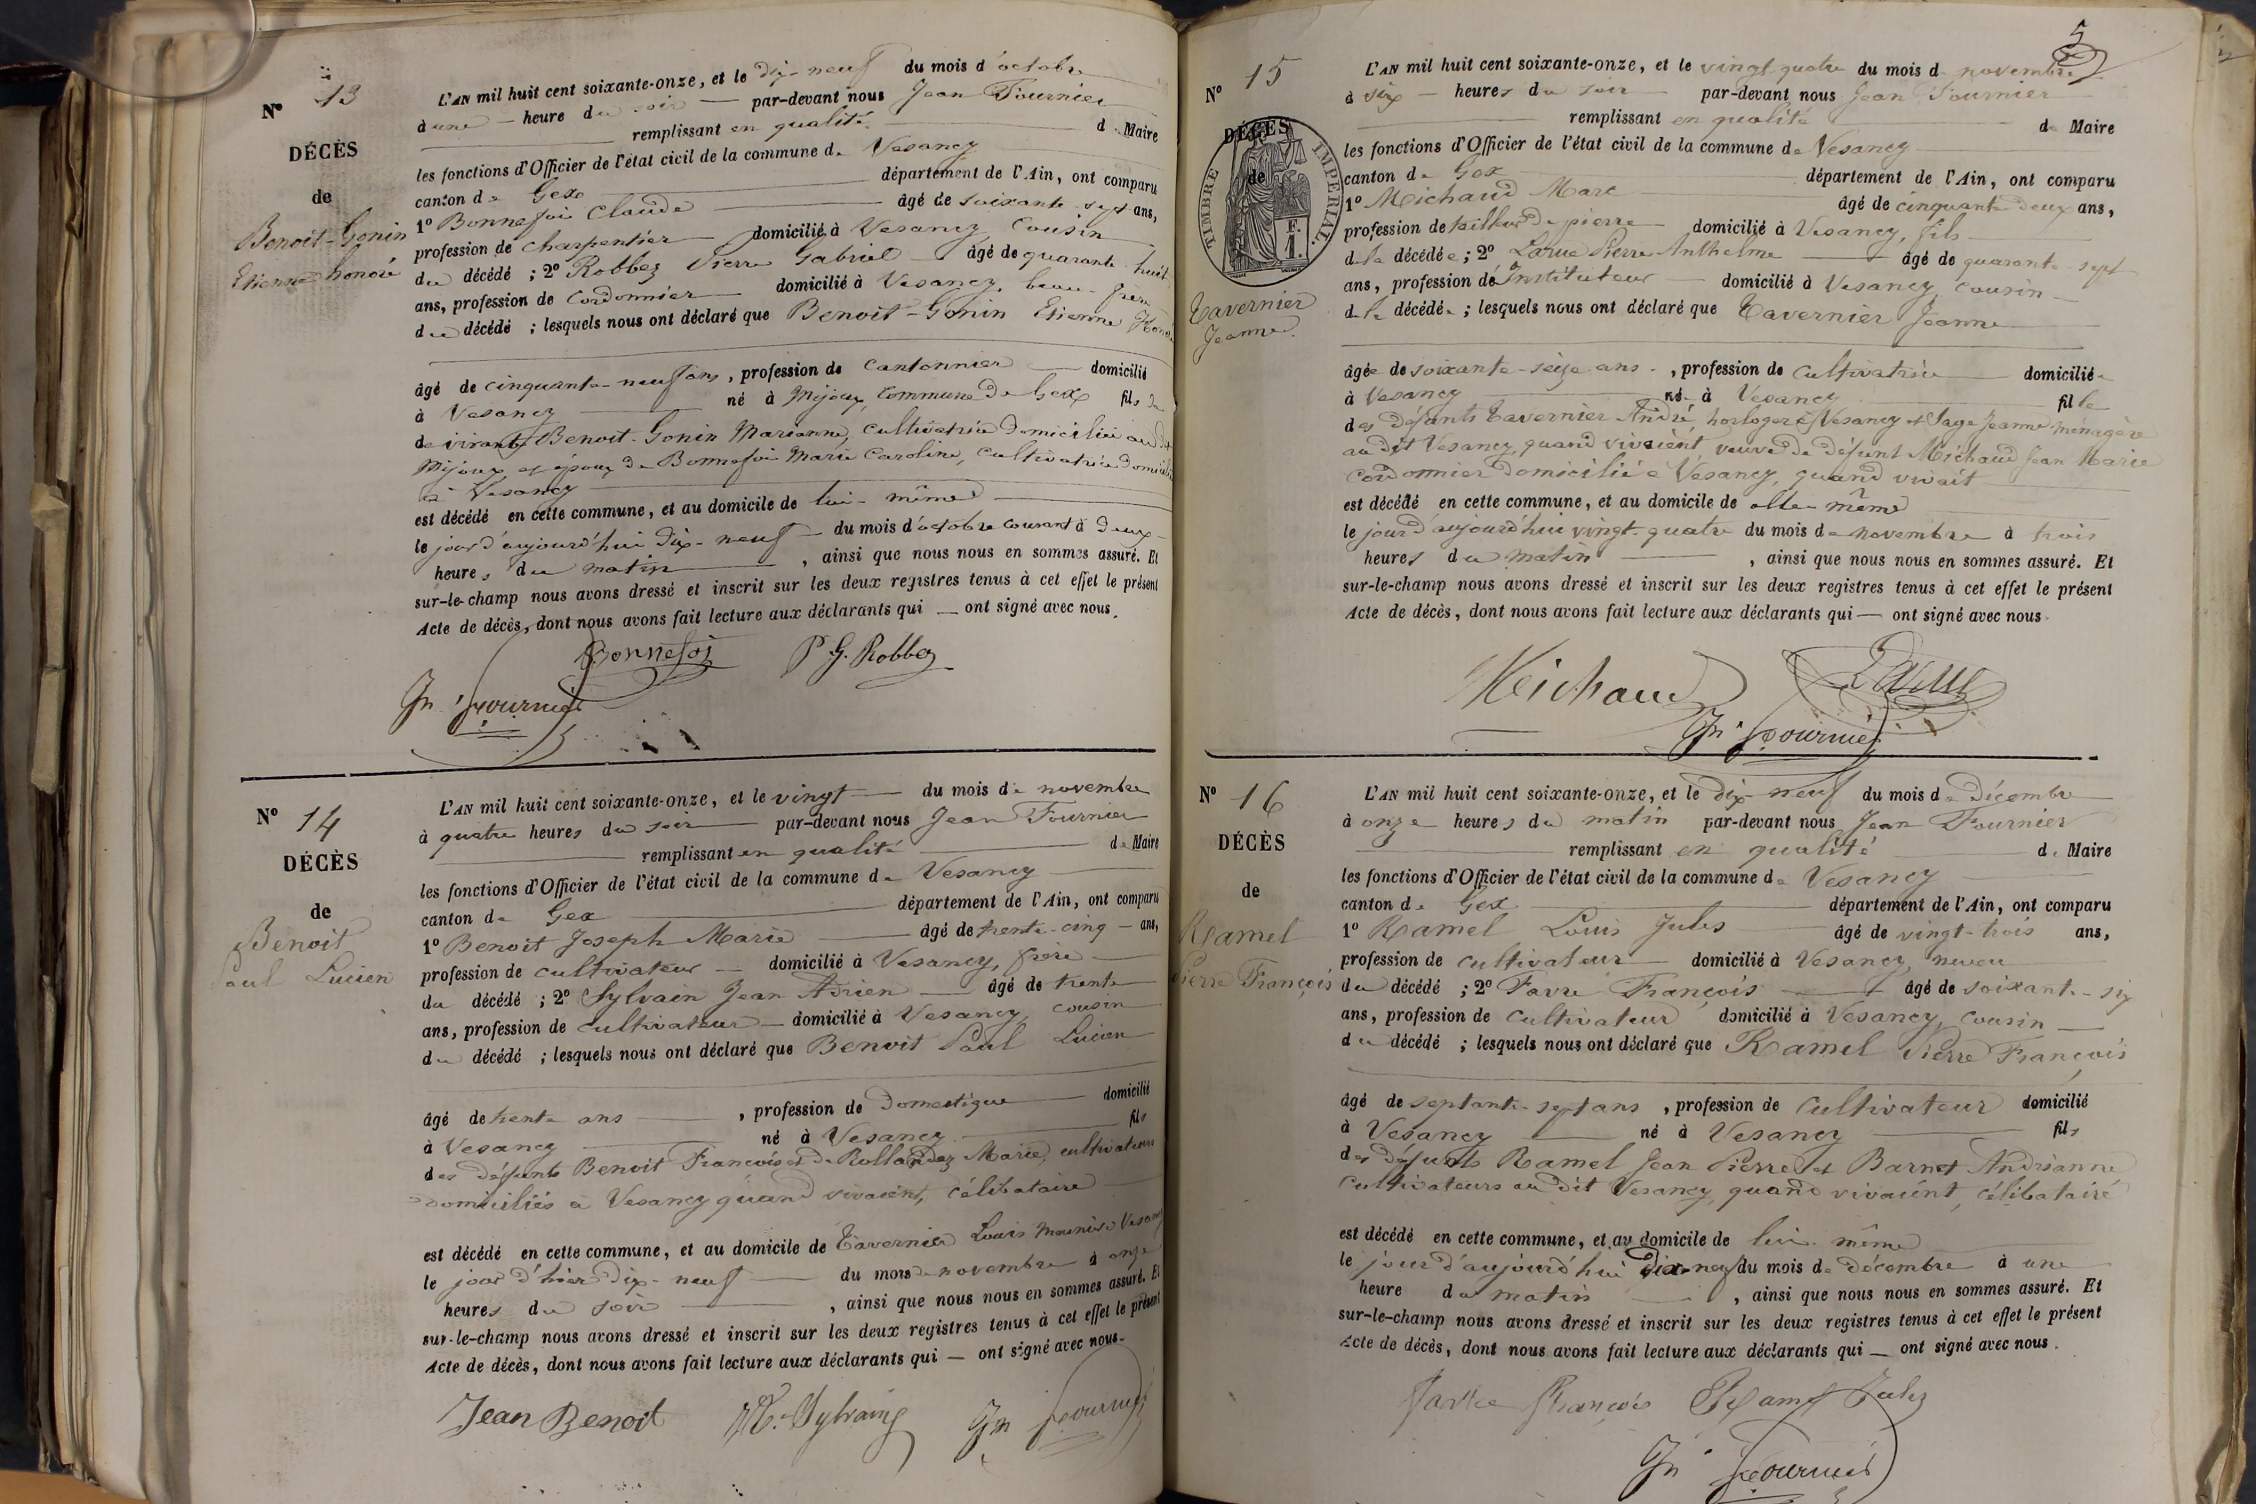 N° 13
DÉCÈS
de
Benoit-Gonin
Etienne honoré
L'AN mil huit cent soixante-onze, et le dix-neuf du mois d'octobre
à une heure du soir par-devant nous Jean Fournier
remplissant en qualité de Maire
les fonctions d'Officier de l'état civil de la commune de Vesancy
canton de Gex département de l'Ain, ont comparu
1° Bonnefoi Claude âgé de soixante-sept ans,
profession de charpentier domicilié à Vesancy, Cousin
du décédé ; 2° Robbez Pierre Gabriel âgé de quarante-huit
ans, profession de Cordonnier domicilié à Vesancy, beau-frère
du décédé ; lesquels nous ont déclaré que Benoit-Gonin Etienne Honoré
âgé de cinquante-neuf ans, profession de Cantonnier domicilié
à Vesancy né à Mijoux, Commune de Gex fils de
de vivante Benoit-Gonin Marianne, cultivatrice domiciliée au dit
Mijoux et époux de Bonnefoi Marie Caroline, cultivatrice domiciliée
à Vesancy
est décédé en cette commune, et au domicile de lui-même
le jour d'aujourd'hui dix-neuf du mois d'octobre courant à deux
heures du matin, ainsi que nous nous en sommes assuré. Et
sur-le-champ nous avons dressé et inscrit sur les deux registres tenus à cet effet le présent
Acte de décès, dont nous avons fait lecture aux déclarants qui — ont signé avec nous.
Bonnefoi P. G. Robbez
Jn Fournier
N° 14
DÉCÈS
de
Benoit
Paul Lucien
L'AN mil huit cent soixante-onze, et le vingt du mois de novembre
à quatre heures du soir par-devant nous Jean Fournier
remplissant en qualité de Maire
les fonctions d'Officier de l'état civil de la commune de Vesancy
canton de Gex département de l'Ain, ont comparu
1° Benoit Joseph Marie âgé de trente-cinq ans,
profession de cultivateur domicilié à Vesancy, frère
du décédé ; 2° Sylvain Jean Adrien âgé de trente
ans, profession de cultivateur domicilié à Vesancy, cousin
du décédé ; lesquels nous ont déclaré que Benoit Paul Lucien
âgé de trente ans, profession de Domestique domicilié
à Vesancy né à Vesancy fils
des défunts Benoit François et de Rollandez Marie, cultivateurs
domiciliés à Vesancy quand vivaient, célibataire
est décédé en cette commune, et au domicile de Tavernier Louis Vesancy
le jour d'hier dix-neuf du mois de novembre à onze
heures du soir, ainsi que nous nous en sommes assuré. Et
sur-le-champ nous avons dressé et inscrit sur les deux registres tenus à cet effet le présent
Acte de décès, dont nous avons fait lecture aux déclarants qui — ont signé avec nous.
Jean Benoit Sylvain Jn Fournier
5
N° 15
DÉCÈS
de
TIMBRE IMPERIAL
F.
1.
Tavernier
Jeanne.
L'AN mil huit cent soixante-onze, et le vingt quatre du mois de novembre
à six heures du soir par-devant nous Jean Fournier
remplissant en qualité de Maire
les fonctions d'Officier de l'état civil de la commune de Vesancy
canton de Gex département de l'Ain, ont comparu
1° Michaud Marc âgé de cinquante deux ans,
profession de tailleur de pierre domicilié à Vesancy, fils
de la décédée ; 2° Larue Pierre Anthelme âgé de quarante-sept
ans, profession d'Instituteur domicilié à Vesancy, cousin
de la décédée ; lesquels nous ont déclaré que Tavernier Jeanne
âgée de soixante-seize ans, profession de Cultivatrice domiciliée
à Vesancy née à Vesancy fille
des défunts Tavernier André, horloger à Vesancy et Sage Jeanne ménagère
au dit Vesancy, quand vivaient, veuve de défunt Michaud Jean Marie
Cordonnier domicilié à Vesancy, quand vivait
est décédé en cette commune, et au domicile de elle-même
le jour d'aujourd'hui vingt-quatre du mois de novembre à trois
heures du matin, ainsi que nous nous en sommes assuré. Et
sur-le-champ nous avons dressé et inscrit sur les deux registres tenus à cet effet le présent
Acte de décès, dont nous avons fait lecture aux déclarants qui — ont signé avec nous.
Michaud Larue
Jn Fournier
N° 16
DÉCÈS
de
Ramel
Pierre François
L'AN mil huit cent soixante-onze, et le dix-neuf du mois de Décembre
à onze heures du matin par-devant nous Jean Fournier
remplissant en qualité de Maire
les fonctions d'Officier de l'état civil de la commune de Vesancy
canton de Gex département de l'Ain, ont comparu
1° Ramel Louis Jules âgé de vingt-trois ans,
profession de cultivateur domicilié à Vesancy, neveu
du décédé ; 2° Favre François âgé de soixante-six
ans, profession de Cultivateur domicilié à Vesancy, Cousin
du décédé ; lesquels nous ont déclaré que Ramel Pierre François
âgé de septante-sept ans, profession de Cultivateur domicilié
à Vesancy né à Vesancy fils
des défunts Ramel Jean Pierre et Barnet Andrianne
Cultivateurs au dit Vesancy, quand vivaient, célibataire
est décédé en cette commune, et au domicile de lui-même
le jour d'aujourd'hui dix-neuf du mois de décembre à une
heure du matin, ainsi que nous nous en sommes assuré. Et
sur-le-champ nous avons dressé et inscrit sur les deux registres tenus à cet effet le présent
Acte de décès, dont nous avons fait lecture aux déclarants qui — ont signé avec nous.
François Ramel Jules
Jn Fournier